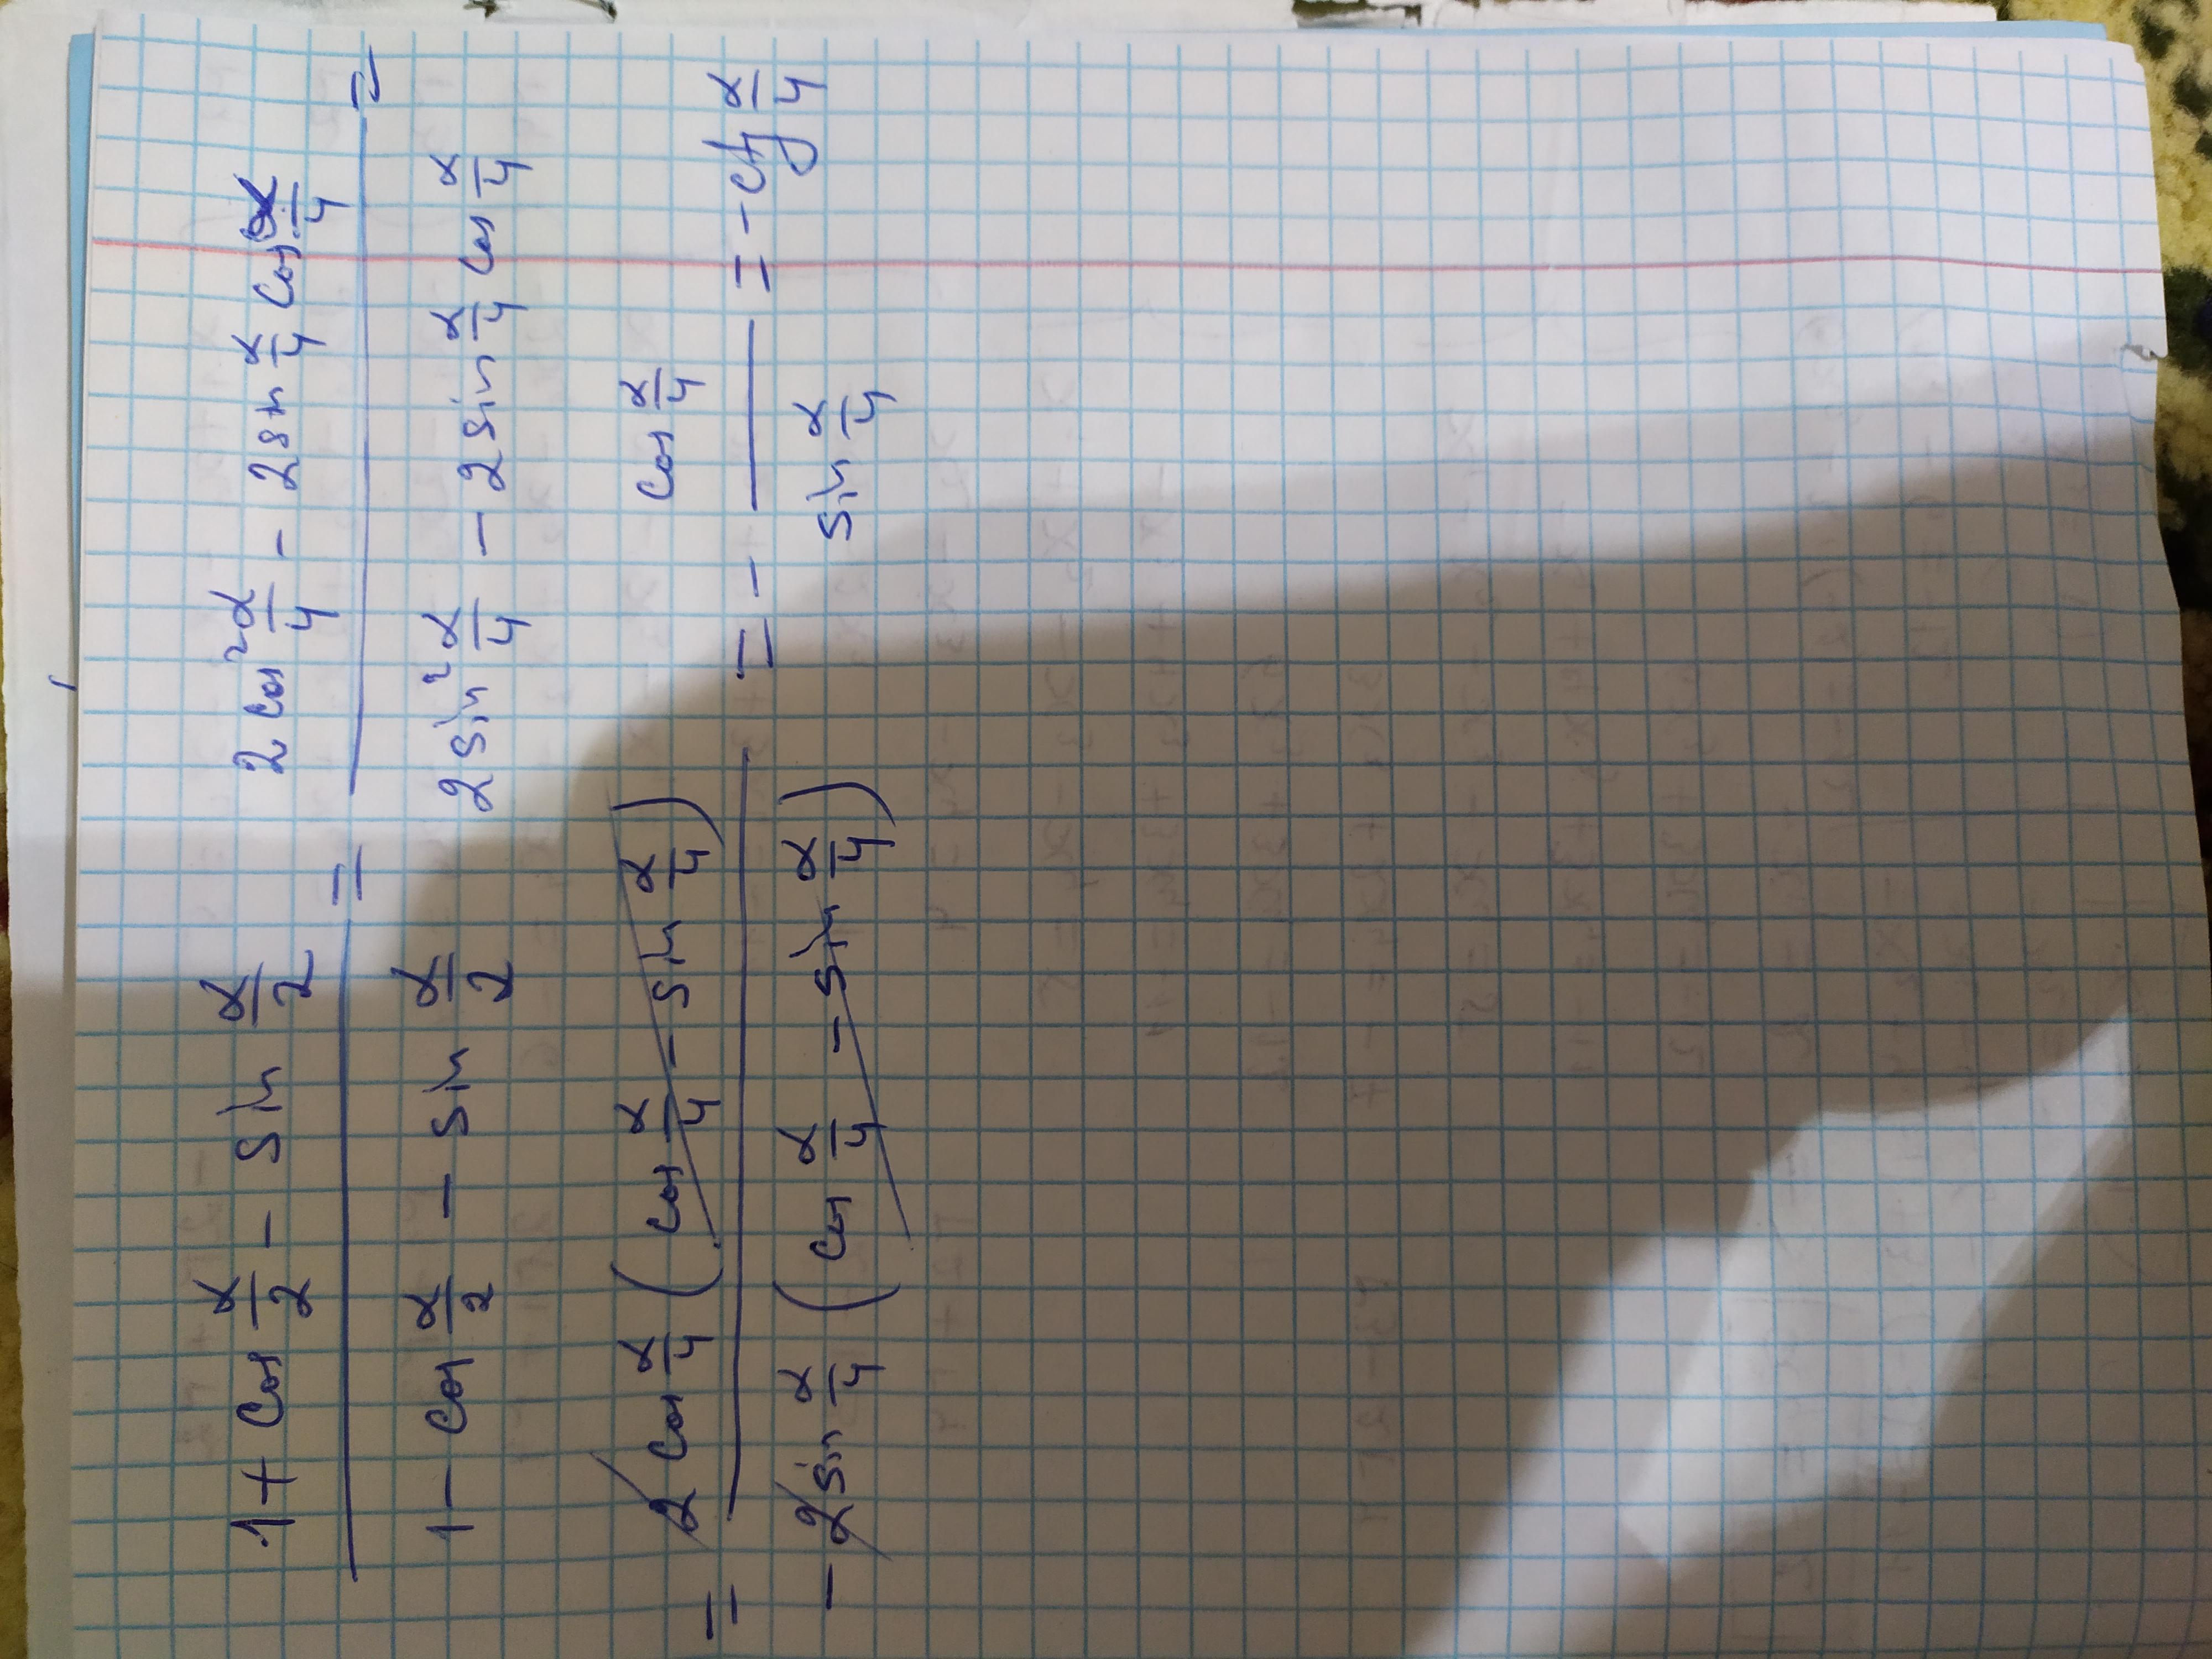 1 + cos α/2 - sin α/2 / 1 - cos α/2 - sin α/2 = 2 cos² α/4 - 2 sin α/4 cos α/4 / 2 sin² α/4 - 2 sin α/4 cos α/4 =
= 2 cos α/4 (cos α/4 - sin α/4) / -2 sin α/4 (cos α/4 - sin α/4) = - cos α/4 / sin α/4 = - ctg α/4